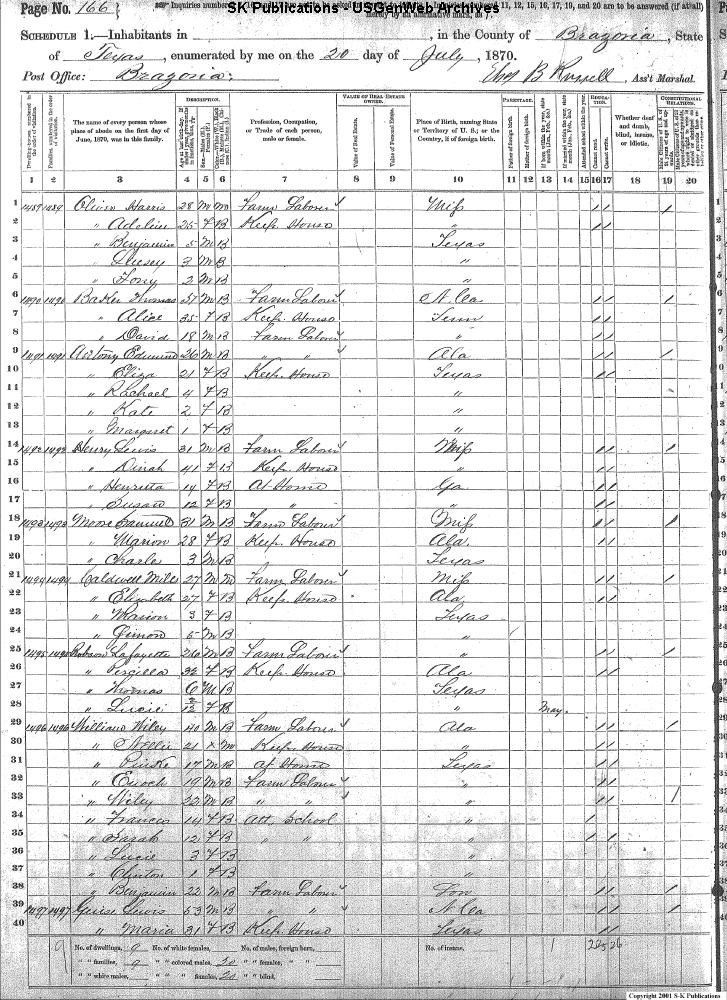 SK Publications - USGenWeb Archives
Page No. 166
Inquiries numbered 11, 12, 15, 16, 17, 19, and 20 are to be answered (if at all) merely by an affirmative mark, as /.
SCHEDULE 1.—Inhabitants in , in the County of Brazoria, State
of Texas, enumerated by me on the 20 day of July, 1870.
Post Office: Brazoria. B Russell, Ass't Marshal.
DESCRIPTION. VALUE OF REAL ESTATE OWNED. PARENTAGE. EDUCATION. CONSTITUTIONAL RELATIONS.
The name of every person whose place of abode on the first day of June, 1870, was in this family.
Profession, Occupation, or Trade of each person, male or female.
Value of Real Estate.
Value of Personal Estate.
Place of Birth, naming State or Territory of U. S.; or the Country, if of foreign birth.
Father of foreign birth.
Mother of foreign birth.
Cannot read.
Cannot write.
Whether deaf and dumb, blind, insane, or idiotic.
1 2 3 4 5 6 7 8 9 10 11 12 13 14 15 16 17 18 19 20
1 1489 1489 Harris 28 M M Farm Labour Miss / / /
2 " Adeline 25 F B Keep House " / /
3 " Benjamin 5 M B Texas
4 " 3 M B "
5 " Tony 2 M B "
6 1490 1490 Baker Thomas 37 M B Farm Labour N. Ca / / /
7 " Alice 35 F B Keep House Tenn / /
8 " David 18 M B Farm Labour " / /
9 1491 1491 Antony Edmund 26 M B " " Ala / / /
10 " Eliza 21 F B Keep House Texas / /
11 " Rachael 4 F B "
12 " Kate 2 F B "
13 " Margaret 1 F B "
14 1492 1492 Henry Lewis 31 M B Farm Labour Miss / / /
15 " Dinah 41 F B Keep House " / /
16 " Henrietta 14 F B At Home Ga / /
17 " Susan 12 F B " " " / /
18 1493 1493 Moore Samuel 31 M B Farm Labour Miss / / /
19 " Marion 28 F B Keep House Ala. / /
20 " Charle 3 M B Texas
21 1494 1494 Caldwell Miles 27 M M Farm Labour Miss / / /
22 " Elizabeth 27 F B Keep House Ala / /
23 " Marion 3 F B Texas
24 " Simon 5 M B "
25 1495 1495 Robson Lafayette 26 M B Farm Labour " / / /
26 " Percilla 32 F B Keep House Ala / /
27 " Thomas 6 M B Texas
28 " Lucie 2/12 F B " May.
29 1496 1496 William Wiley 40 M B Farm Labour Ala / / /
30 " Nellie 21 M Keep House " / /
31 " 17 M B At Home Texas / /
32 " Enoch 19 M B Farm Labour " / /
33 " Wiley 22 M B " " " / / /
34 " Frances 14 F B Att. School " /
35 " Sarah 12 F B " " " / /
36 " Lucie 3 F B "
37 " Clinton 1 F B "
38 " Benjamin 22 M B Farm Labour / / /
39 1497 1497 Lewis 53 M B " " N. Ca / / /
40 " Maria 31 F B Keep House Texas / /
No. of dwellings, 9 No. of white females, No. of males, foreign born, No. of insane, 1
" " families, 9 " " colored males, 20 " " females, " "
" " white males, " " " females, 20 " " blind,
Copyright 2001 S-K Publications